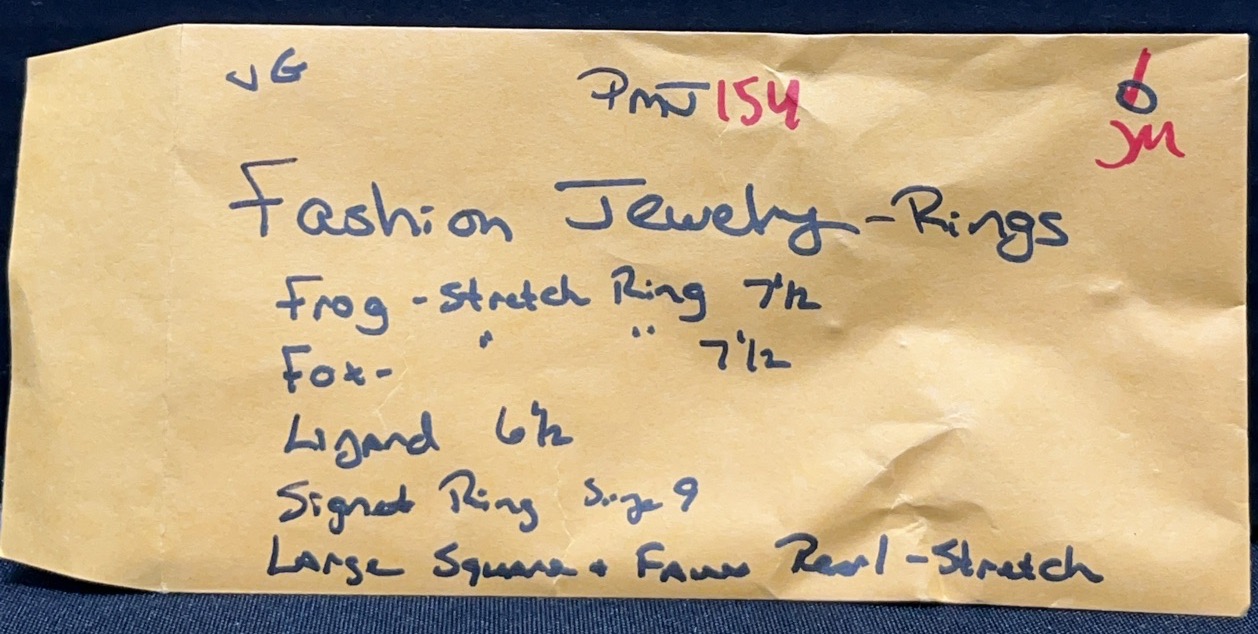 VG PMJ 154
JM
Fashion Jewelry - Rings
Frog - Stretch Ring 7 1/2
Fox - " " 7 1/2
Lizard 6 1/2
Signet Ring Size 9
Large Square + Faux Pearl - Stretch